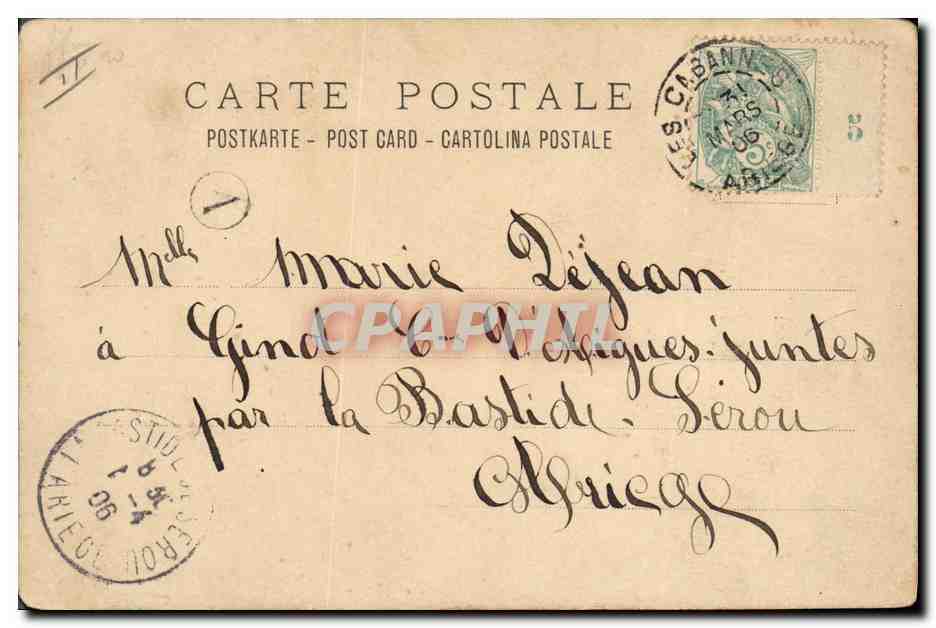 CARTE POSTALE
POSTKARTE - POST CARD - CARTOLINA POSTALE
LES CABANNES
31
MARS
06
ARIEGE
5c
5
A
Melle Marie Déjean
à Gind Cne d'Aigues-juntes
par la Bastide-Sérou
Ariege
CPAPHIL
LA BASTIDE DE SEROU
1 -4
06
ARIEGE